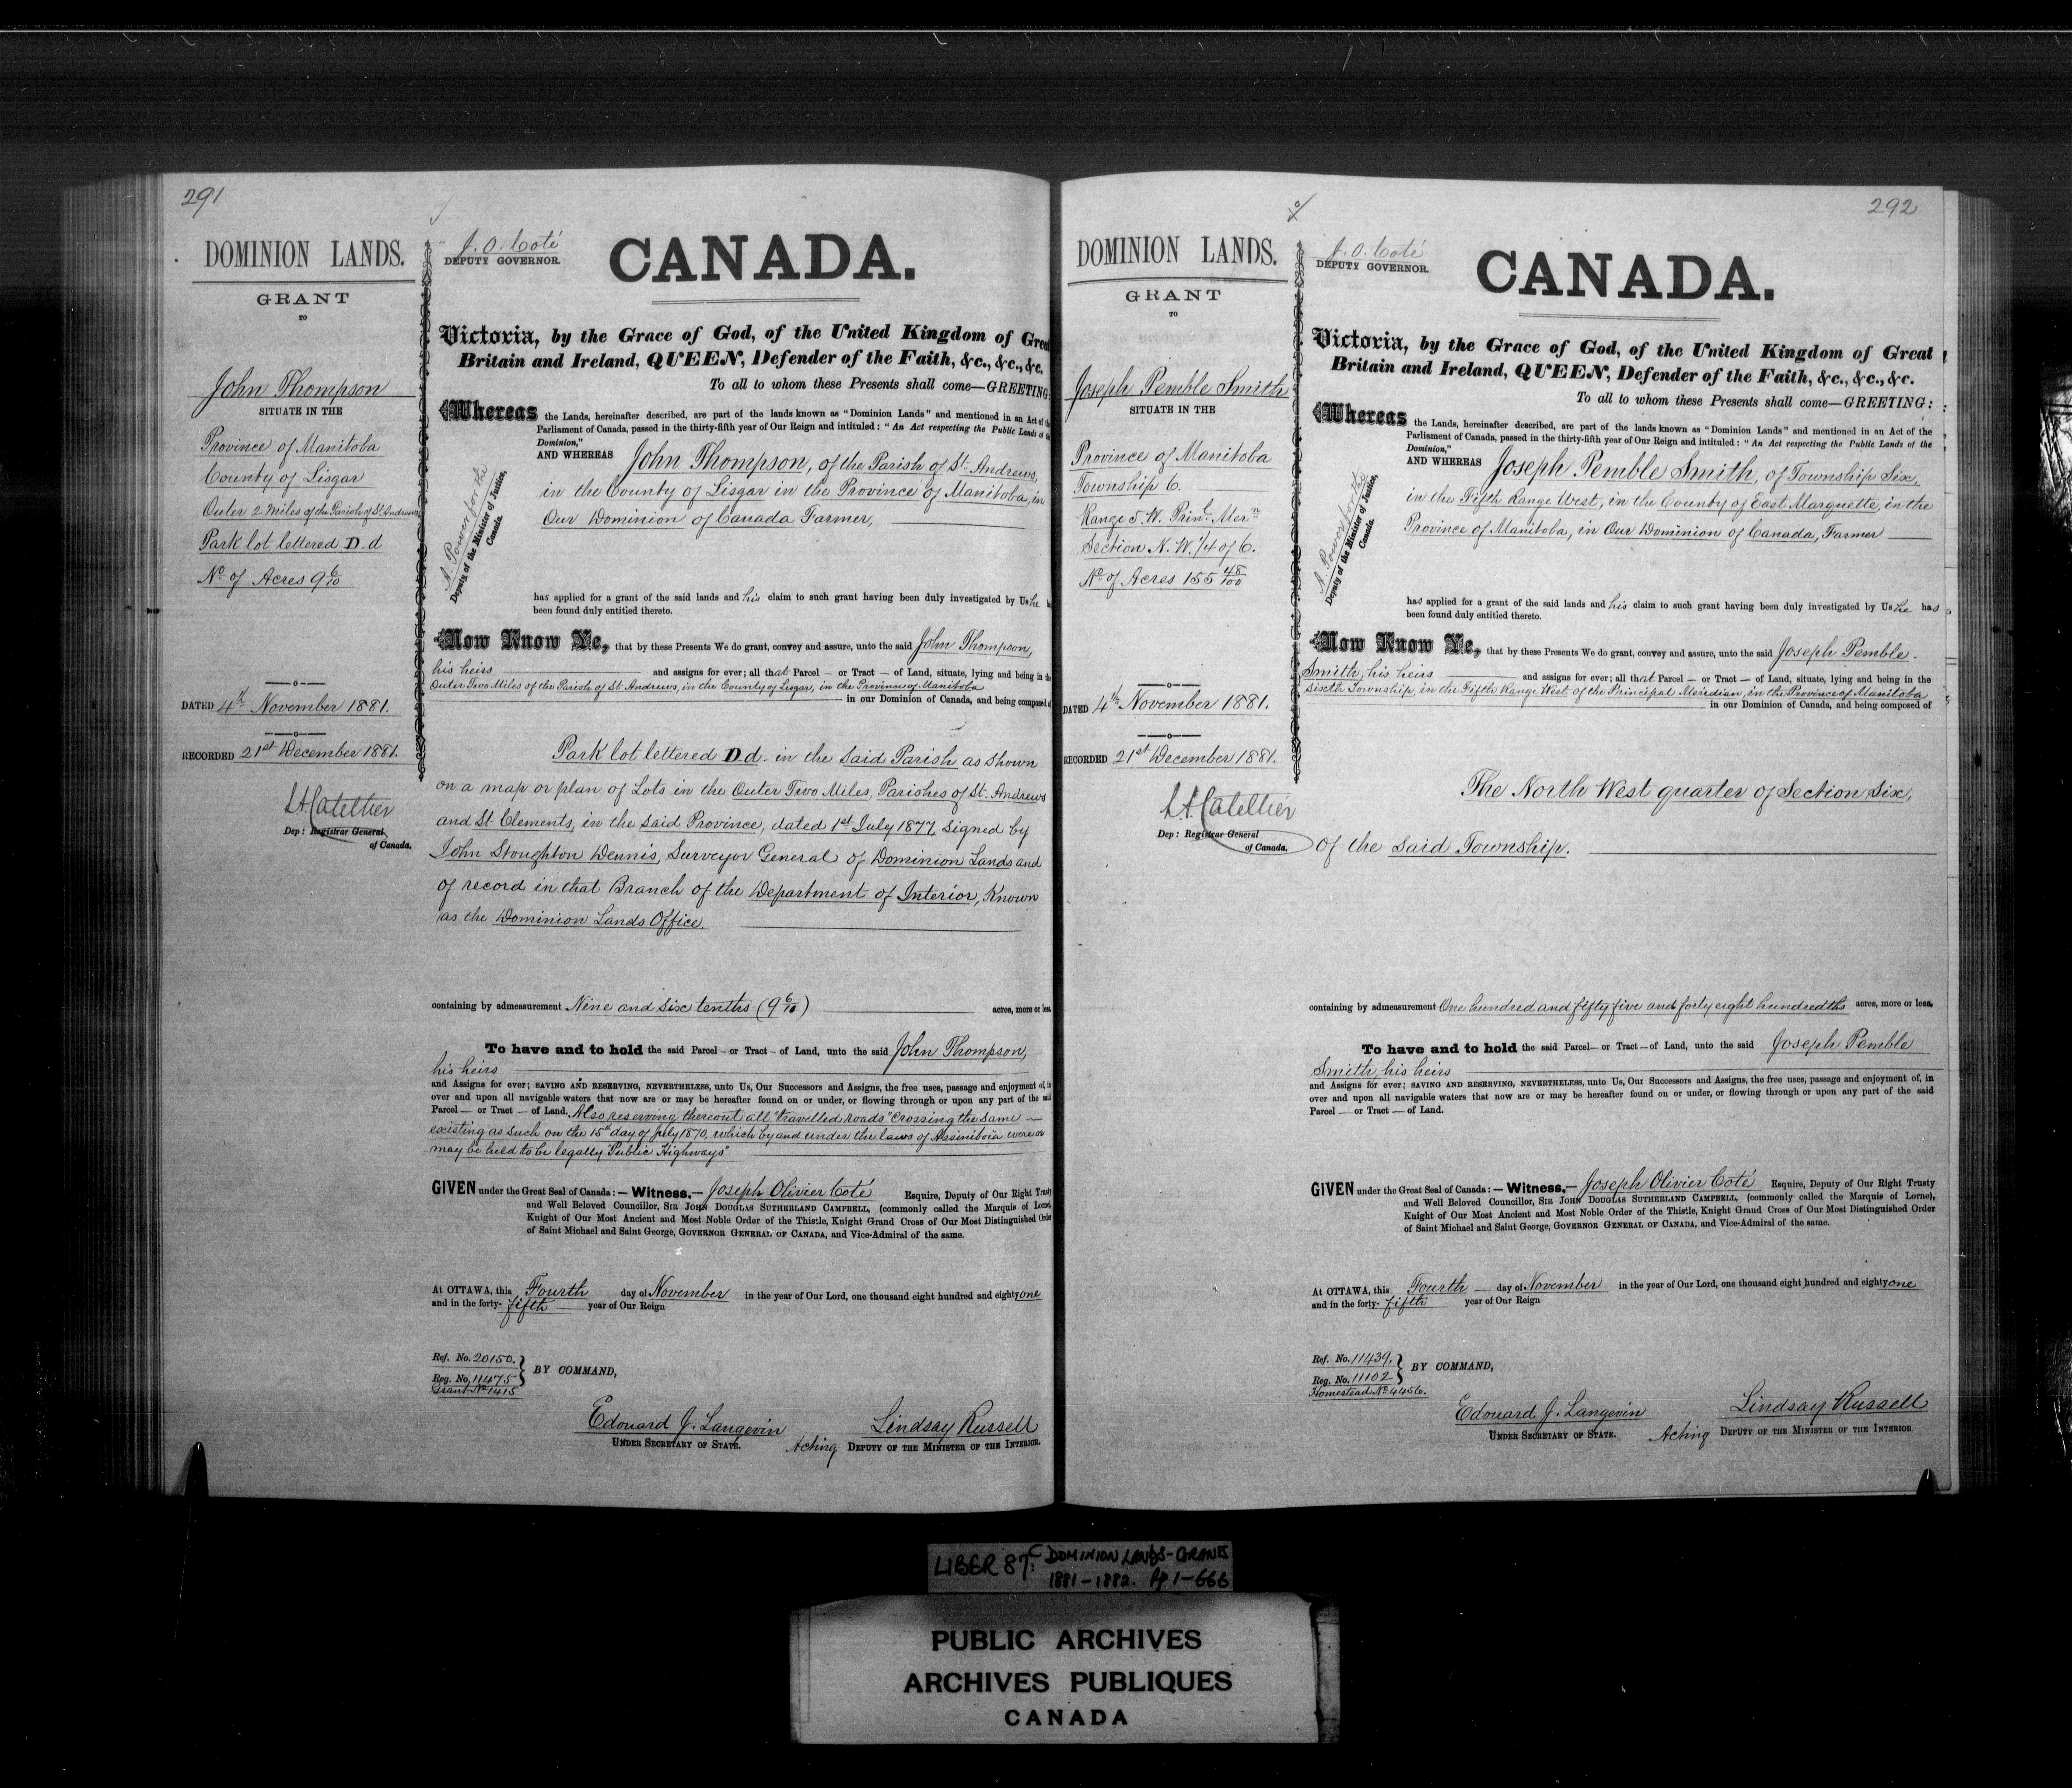 291
DOMINION LANDS.
GRANT
TO
John Thompson
SITUATE IN THE
Province of Manitoba
County of Lisgar
Outer 2 Miles of the Parish of St. Andrews
Park lot lettered D.d
No. of Acres 9 6/10
DATED 4th November 1881.
RECORDED 21st December 1881.
L.A. Catellier
Dep: Registrar General
of Canada.
J. O. Coté
DEPUTY GOVERNOR.
CANADA.
A. Power for the
Deputy of the Minister of Justice,
Canada.
Victoria, by the Grace of God, of the United Kingdom of Great
Britain and Ireland, QUEEN, Defender of the Faith, &c., &c., &c.
To all to whom these Presents shall come—GREETING:
Whereas the Lands, hereinafter described, are part of the lands known as "Dominion Lands" and mentioned in an Act of the
Parliament of Canada, passed in the thirty-fifth year of Our Reign and intituled: "An Act respecting the Public Lands of the
Dominion,"
AND WHEREAS John Thompson, of the Parish of St. Andrews,
in the County of Lisgar in the Province of Manitoba, in
Our Dominion of Canada Farmer,
has applied for a grant of the said lands and his claim to such grant having been duly investigated by Us he has
been found duly entitled thereto.
Now Know Ye, that by these Presents We do grant, convey and assure, unto the said John Thompson,
his heirs and assigns for ever; all that Parcel – or Tract – of Land, situate, lying and being in the
Outer Two Miles of the Parish of St Andrews, in the County of Lisgar, in the Province of Manitoba
in our Dominion of Canada, and being composed of
Park lot lettered D.d. in the said Parish as shown
on a map or plan of Lots in the Outer Two Miles, Parishes of St. Andrews
and St. Clements, in the said Province, dated 1st July 1877, signed by
John Stoughton Dennis, Surveyor General of Dominion Lands and
of record in that Branch of the Department of Interior, Known
as the Dominion Lands Office.
containing by admeasurement Nine and six tenths (9 6/10) acres, more or less
To have and to hold the said Parcel – or Tract – of Land, unto the said John Thompson,
his heirs
and Assigns for ever; SAVING AND RESERVING, NEVERTHELESS, unto Us, Our Successors and Assigns, the free uses, passage and enjoyment of, in
over and upon all navigable waters that now are or may be hereafter found on or under, or flowing through or upon any part of the said
Parcel — or Tract — of Land. Also reserving thereout all "travelled roads" crossing the same
existing as such on the 15th day of July 1870, which by and under the laws of Assiniboia were or
may be held to be legally "Public Highways"
GIVEN under the Great Seal of Canada:—Witness,—Joseph Olivier Coté Esquire, Deputy of Our Right Trusty
and Well Beloved Councillor, SIR JOHN DOUGLAS SUTHERLAND CAMPBELL, (commonly called the Marquis of Lorne),
Knight of Our Most Ancient and Most Noble Order of the Thistle, Knight Grand Cross of Our Most Distinguished Order
of Saint Michael and Saint George, GOVERNOR GENERAL OF CANADA, and Vice-Admiral of the same.
At OTTAWA, this Fourth day of November in the year of Our Lord, one thousand eight hundred and eighty one
and in the forty-fifth year of Our Reign
Ref. No. 20150.
Reg. No. 11475
Grant No 1415
BY COMMAND,
Edouard J. Langevin
UNDER SECRETARY OF STATE.
Lindsay Russell
Acting DEPUTY OF THE MINISTER OF THE INTERIOR.
292
DOMINION LANDS.
GRANT
TO
Joseph Pemble Smith
SITUATE IN THE
Province of Manitoba
Township 6.
Range 5. W. Prinl. Mern.
Section N. W. 1/4 of 6.
No. of Acres 155 48/100
DATED 4th November 1881.
RECORDED 21st December 1881.
L.A. Catellier
Dep: Registrar General
of Canada.
J. O. Coté
DEPUTY GOVERNOR.
CANADA.
A. Power for the
Deputy of the Minister of Justice,
Canada.
Victoria, by the Grace of God, of the United Kingdom of Great
Britain and Ireland, QUEEN, Defender of the Faith, &c., &c., &c.
To all to whom these Presents shall come—GREETING:
Whereas the Lands, hereinafter described, are part of the lands known as "Dominion Lands" and mentioned in an Act of the
Parliament of Canada, passed in the thirty-fifth year of Our Reign and intituled: "An Act respecting the Public Lands of the
Dominion,"
AND WHEREAS Joseph Pemble Smith, of Township Six,
in the Fifth Range West, in the County of East Marquette, in the
Province of Manitoba, in Our Dominion of Canada, Farmer
has applied for a grant of the said lands and his claim to such grant having been duly investigated by Us he has
been found duly entitled thereto.
Now Know Ye, that by these Presents We do grant, convey and assure, unto the said Joseph Pemble
Smith, his heirs and assigns for ever; all that Parcel – or Tract – of Land, situate, lying and being in the
Sixth Township, in the Fifth Range West of the Principal Meridian, in the Province of Manitoba
in our Dominion of Canada, and being composed of
The North West quarter of Section Six,
of the said Township.
containing by admeasurement One hundred and fifty five and forty eight hundredths acres, more or less.
To have and to hold the said Parcel – or Tract – of Land, unto the said Joseph Pemble
Smith, his heirs
and Assigns for ever; SAVING AND RESERVING, NEVERTHELESS, unto Us, Our Successors and Assigns, the free uses, passage and enjoyment of, in
over and upon all navigable waters that now are or may be hereafter found on or under, or flowing through or upon any part of the said
Parcel — or Tract — of Land.
GIVEN under the Great Seal of Canada:—Witness,—Joseph Olivier Coté Esquire, Deputy of Our Right Trusty
and Well Beloved Councillor, SIR JOHN DOUGLAS SUTHERLAND CAMPBELL, (commonly called the Marquis of Lorne),
Knight of Our Most Ancient and Most Noble Order of the Thistle, Knight Grand Cross of Our Most Distinguished Order
of Saint Michael and Saint George, GOVERNOR GENERAL OF CANADA, and Vice-Admiral of the same.
At OTTAWA, this Fourth day of November in the year of Our Lord, one thousand eight hundred and eighty one
and in the forty-fifth year of Our Reign
Ref. No. 11439.
Reg. No. 11102
Homestead No 4456.
BY COMMAND,
Edouard J. Langevin
UNDER SECRETARY OF STATE.
Lindsay Russell
Acting DEPUTY OF THE MINISTER OF THE INTERIOR
LIBER 87: C DOMINION LANDS-GRANTS
1881-1882. Pp 1-666
PUBLIC ARCHIVES
ARCHIVES PUBLIQUES
CANADA